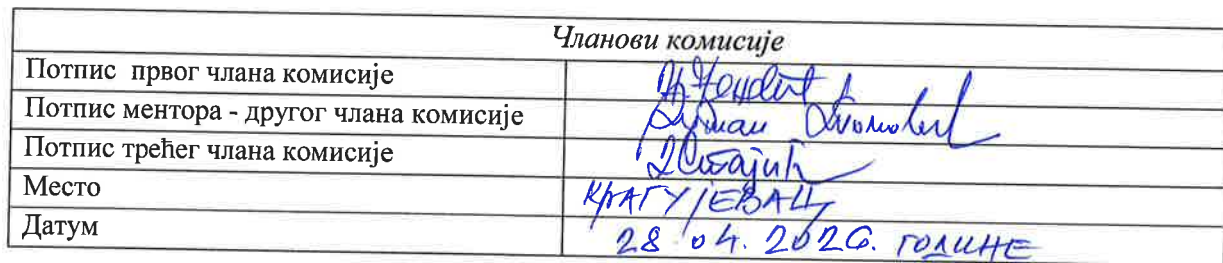 Чланови комисије
Потпис првог члана комисије
Потпис ментора - другог члана комисије
Потпис трећег члана комисије
Место КРАГУЈЕВАЦ
Датум 28 04. 2026. ГОДИНЕ